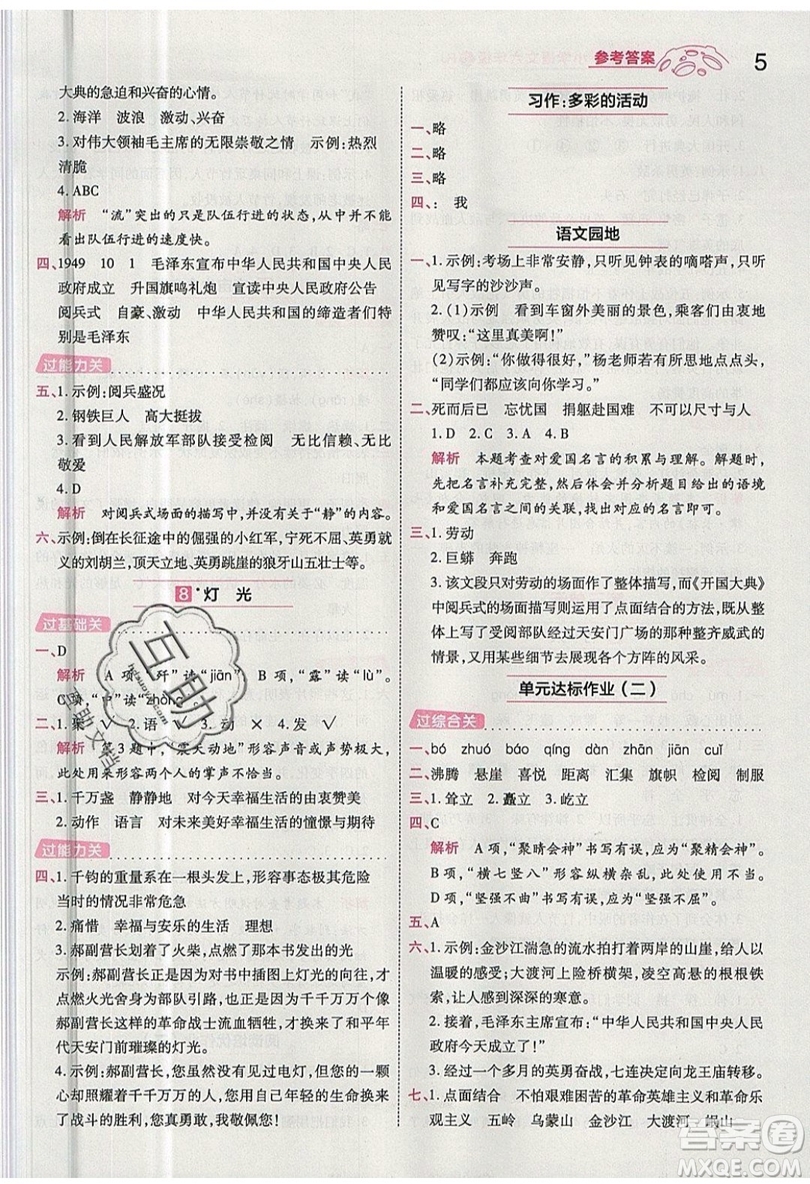 参考答案 5
大典的急迫和兴奋的心情。
2. 海洋 波浪 激动、兴奋
3. 对伟大领袖毛主席的无限崇敬之情 示例:热烈
清脆
4. ABC
解析 “流”突出的只是队伍行进的状态,从中并不能
看出队伍行进的速度快。
四、1949 10 1 毛泽东宣布中华人民共和国中央人民
政府成立 升国旗鸣礼炮 宣读中央人民政府公告
阅兵式 自豪、激动 中华人民共和国的缔造者们特
别是毛泽东
过能力关
五、1. 示例:阅兵盛况
2. 钢铁巨人 高大挺拔
3. 看到人民解放军部队接受检阅 无比信赖、无比
敬爱
4. D
解析 对阅兵式场面的描写中并没有关于“静”的内容。
六、示例:倒在长征途中的倔强的小红军,宁死不屈、英勇就
义的刘胡兰,顶天立地、英勇跳崖的狼牙山五壮士等。
8* 灯 光
过基础关
一、D
解析 A项,“歼”读“jiān”。B项,“露”读“lù”。
C项,“
二、1. 渠 √ 2. 语 √ 3. 动 × 4. 发 √
解析 第3题中,“震天动地”形容声音或声势极大,
此处形容两个人的掌声不恰当。
三、1. 千万盏 静静地 对今天幸福生活的由衷赞美
2. 动作 语言 对未来美好幸福生活的憧憬与期待
过能力关
四、1. 千钧的重量系在一根头发上,形容事态极其危险
当时的情况非常危急
2. 痛惜 幸福与安乐的生活 理想
3. 郝副营长划着了火柴,点燃了那本书发出的光
示例:郝副营长因为对书中插图上灯光的向往,才
点燃火柴为部队引路,也正因为有了千千万万个像
郝副营长这样的革命战士流血牺牲,才有了和平年
代天安门前璀璨的灯光。
4. 示例:郝副营长,您虽没有见过电灯,但您的一颗
心却照耀着千千万万人,您用自己的热血和生命换来
了战斗的胜利,您真勇敢,我敬佩您!
习作:多彩的活动
一、略
二、略
三、略
四、: 我
语文园地
一、1. 示例:考场上非常安静,只听见钟表的嘀嗒声,只听
见写字的沙沙声。
2. (1)示例 看到车窗外美丽的景色,乘客们由衷地
赞叹:“这里真美啊!”
(2)示例:“你说得很好。”杨老师若有所思地点点头,
“同学们都应该向你学习。”
二、死而后已 忘忧国 捐躯赴国难 不可以尺寸与人
1. D 2. C 3. A 4. B
解析 本题考查对爱国名言的积累与理解。解题时,
先把名言补充完整,然后具体分析题目给出的语境
和爱国名言之间的关联,找出对应的名言即可。
三、1. 劳动
2. 巨蟒 奔跑
3. 该文段对劳动的场面作了整体描写,而《开国大典》
中阅兵式的描写采用了点面结合的方法,既从整体
描写了受阅部队经过天安门广场的整齐威武的
情景,又细致描写展现了各个方阵的风采。
单元达标作业(二)
过综合关
一、bó zhuó báo qíng dàn zhān jiān cuī
二、沸腾 悬崖 喜悦 距离 汇集 旗帜 检阅 制服
三、1. 耸立 2. 矗立 3. 屹立
四、C
解析 A项,“聚晴会神”书写有误,应为“聚精会神”。
B项,“横七竖八”形容纵横杂乱,用在此处不合适。
D项,“坚强不曲”书写有误,应为“坚强不屈”。
五、A
六、1. 示例:金沙江湍急的流水拍打着两岸的山崖,给人以
温暖的感觉;大渡河上险桥横架,晃动着的根根铁索,
让人感到深深的寒意。
2. 接着,毛泽东主席宣布:“中华人民共和国中央人民
政府今天成立了。”
3. 经过一个多月的英勇奋战,七连决定向龙王庙转移。
七、1. 点面结合 不怕艰难困苦的革命英雄主义和革命乐
观主义 五岭 乌蒙山 金沙江 大渡河 岷山
互助
互助文档
答案圈
MXQE.COM